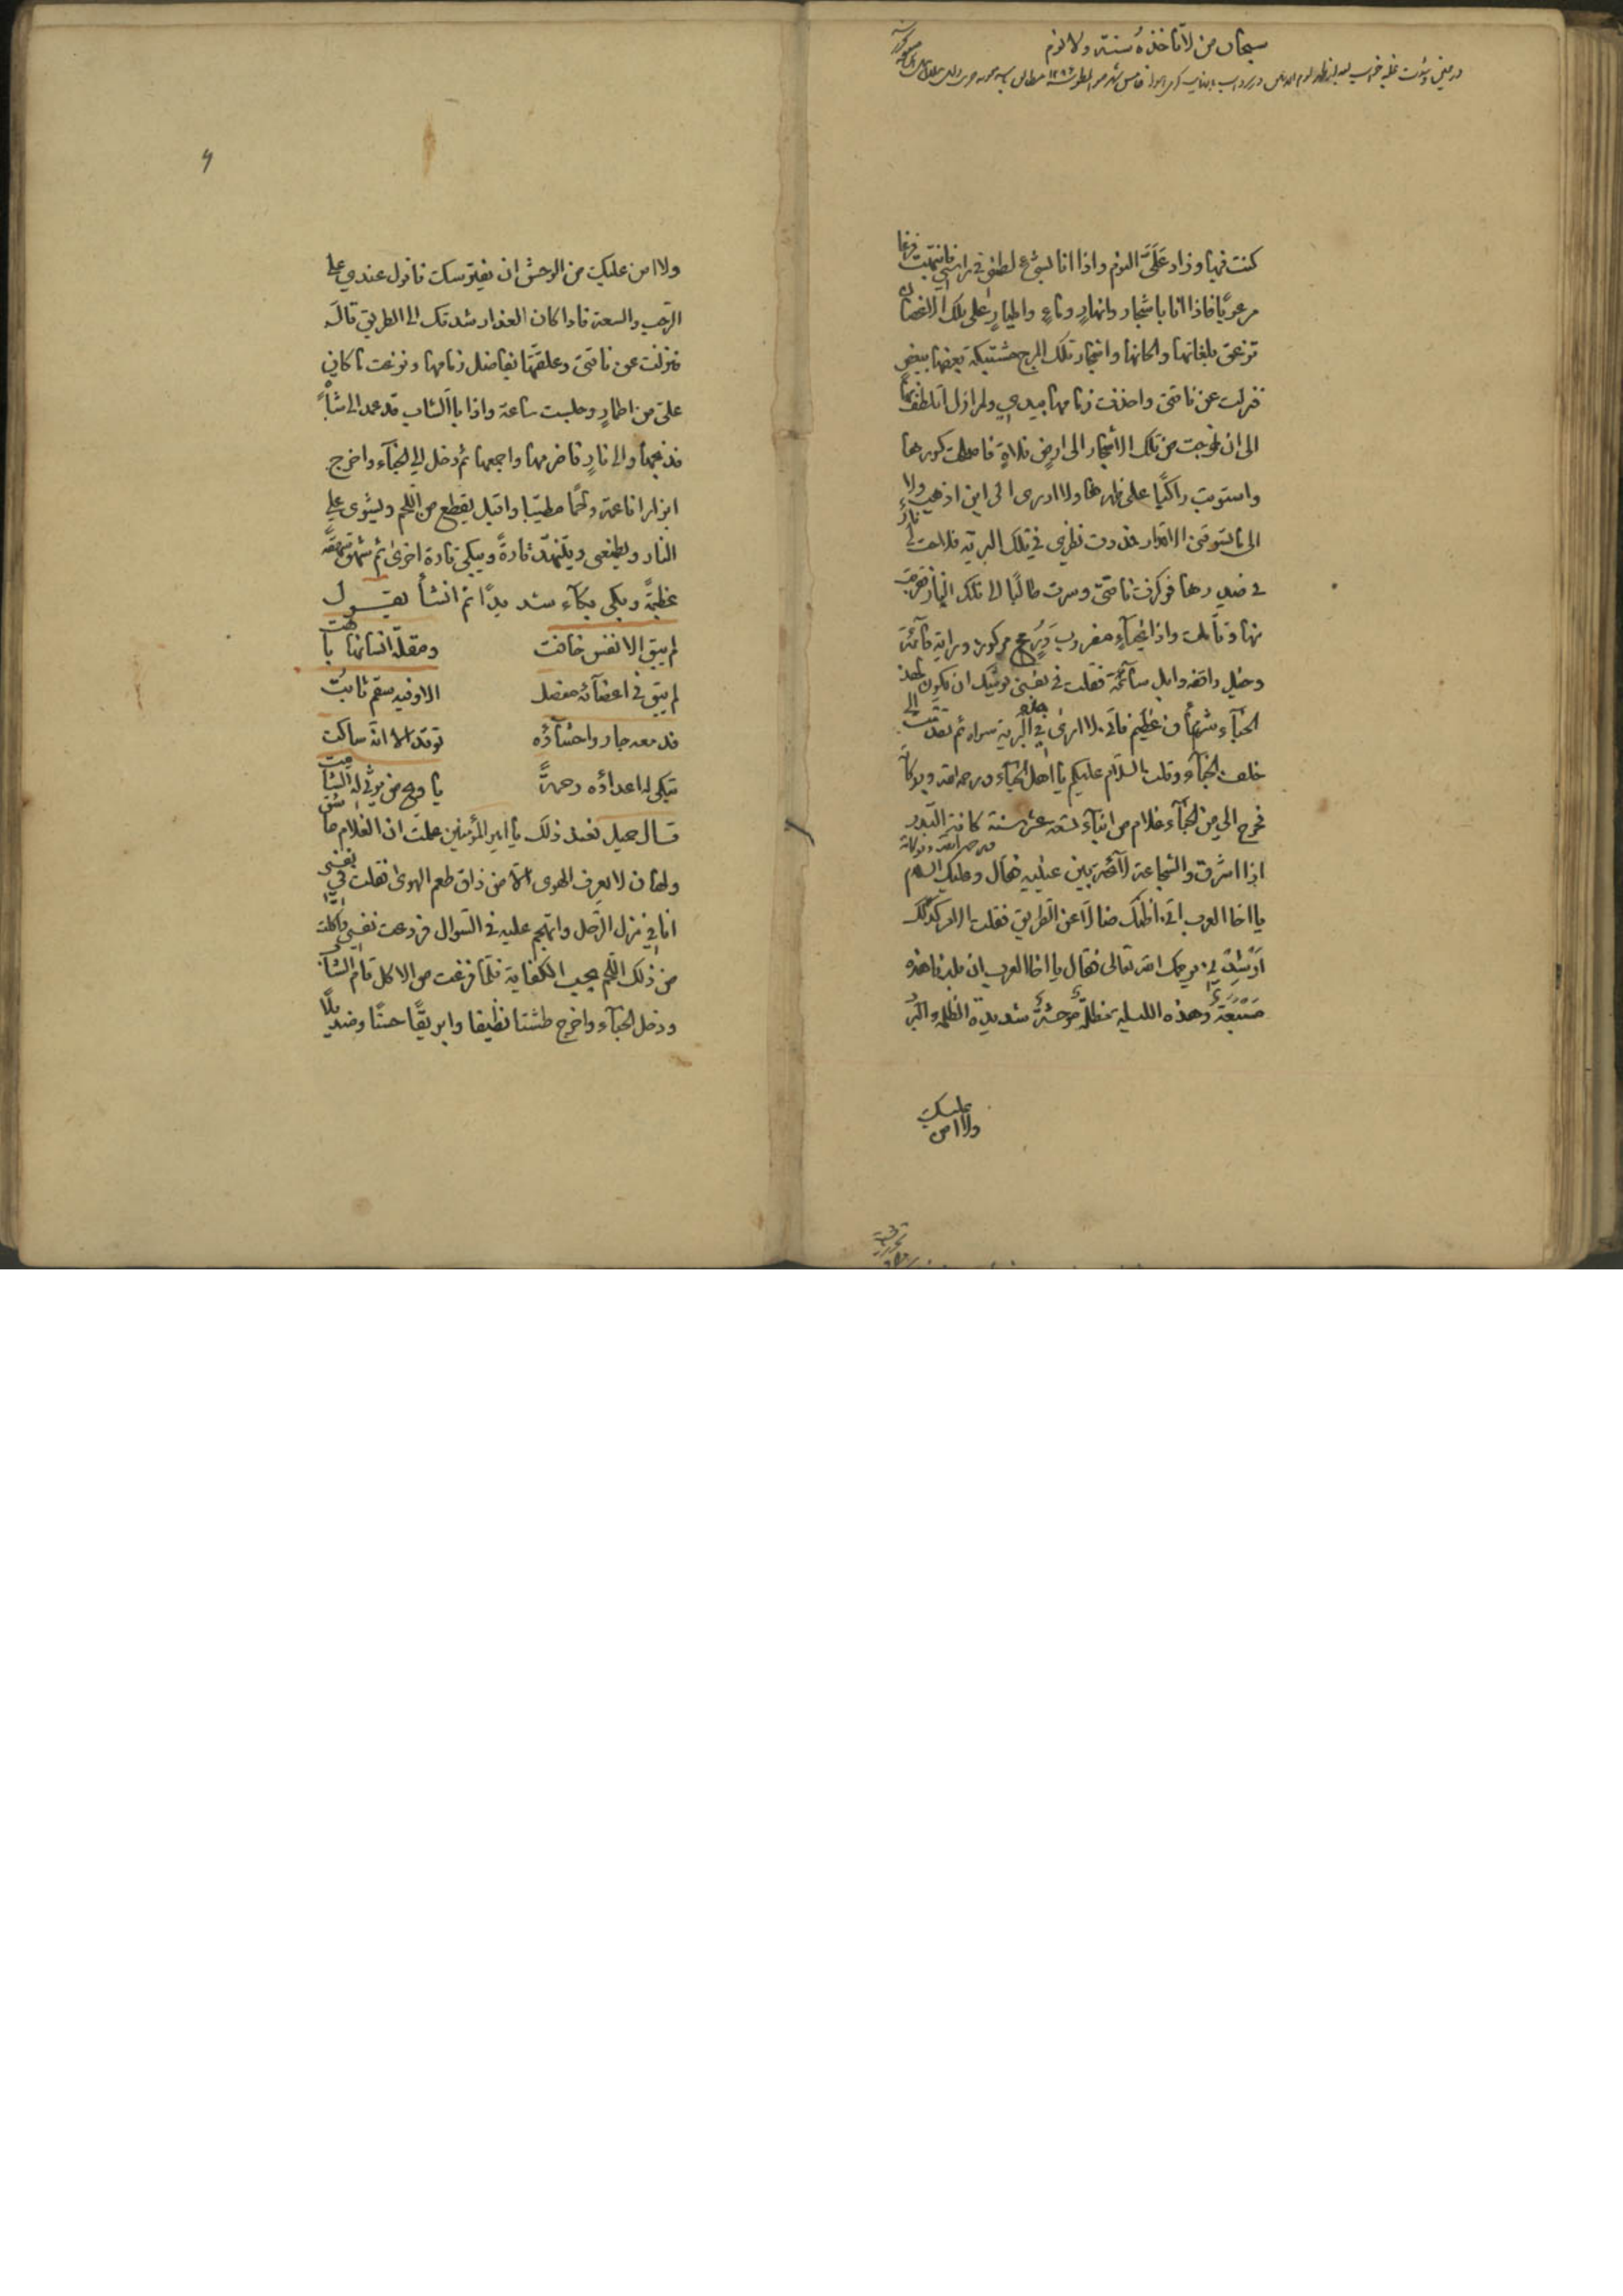 سبحان من لا تأخذه سنة ولا نوم
كنت فيها وزاد عَلَىَّ النوم واذا انا بشيء لطمني في راسي فانتبهت فزعا
مرعوبًا فاذا انا باشجار وانهارٍ وماءٍ واطيارٍ على تلك الاغصان
تزعق بلغاتها والحانها واشجار تلك المرج مشتبكة بعضها ببعض
فنزلت عن ناقتى واخذت زمامها بيدي ولم ازل اتلطف بها
الى ان خرجت من تلك الاشجار الى ارضٍ فلاةٍ فاصلحت كورها
واستويت راكبًا على ظهرها ولا ادرى الى اين اذهب ولا
الى ما تسوقنى الاقدار فمددت نظرى في تلك البرية فلاحت لى نارٌ
في صدرها فوكزت ناقتى وسرت طالبًا الى تلك النار فقربت
منها وتأملت واذا بخبآءٍ مضروب ورُمح مركوز وراية قآئمة
وخيل واقفه وابل سآئمة فقلت في نفسى يوشك ان يكون لهذا
الخبآء شأن عظيم فانّى لا ارى في البرية سواه ثم تقدمت الى
خلف الخبآء وقلت السّلام عليكم يا اهل الخبآء ورحمة الله وبركاته
فخرج الىّ من الخبآء غلام من ابنآء تسعه عشر سنة كانه البدر
اذا اشرق والشجاعة لآئحة بين عينيه فقال وعليك السلام ورحمة الله وبركاته
يا اخا العرب انّى اظنك ضالّا عن الطريق فقلت الامر كذلك
اَرْشِدْنى يرحمك الله تعالى فقال يا اخا العرب ان بلدنا هذه
مَسْبَعَةٌ وهذه الليلة مظلمةٌ مُوحشةٌ شديدة الظلمة والبرد
ولا امن عليك
ولا امن عليك من الوحش ان يفترسك فانزل عندي على
الرّحب والسعة فاذا كان الغد ارشدتك الى الطريق قال
فنزلت عن ناقتى وعقلتها بفاضل زمامها ونزعت ما كان
علىّ من اطمارٍ وجلست ساعة واذا بالشاب قد عمد الى شاةٍ
فذبحها والى نارٍ فاضرمها واججها ثم دخل الى الخبآء واخرج
ابزارا ناعمة وملحًا مطيّبا واقبل يقطع من اللحم ويشوى على
النار ويطعمنى ويتنهّد تارةً ويبكى تارة اخرى ثم شهق شهقةً
عظيمةً وبكى بكآء شديدًا ثم انشأ يقـول
لم يبق الا نفس خافت ومقلة انسانها باهت
لم يبق في اعضآئه مفصل الا وفيه سقم ثابتٌ
فدمعه جار واحشآؤه توقد الا انّه ساكت
تبكى له اعداؤه رحمةً يا ويح من يرثى له الشامت
قـال جميل فعند ذلك يا امير المؤمنين علمت ان الغلام عاشق
ولهان لا يعرف الهوى الا من ذاق طعم الهوى فقلت في نفسى
انا في منزل الرّجل واتهجم عليه في السّوال فردعت نفسى واكلت
من ذلك اللّحم بحسب الكفاية فلمّا فرغت من الاكل قام الشاب
ودخل الخبآء واخرج طشتا نظيفا وابريقًا حسنًا ومنديلًا